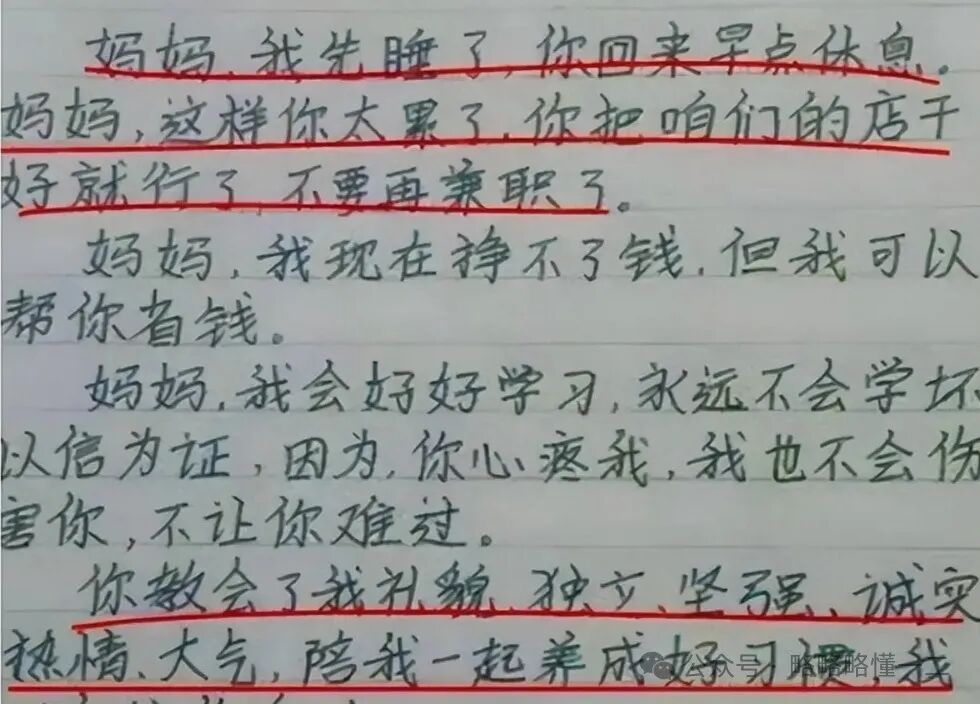 妈妈,我先睡了,你回来早点休息。
妈妈,这样你太累了,你把咱们的店干
好就行了,不要再兼职了。
妈妈,我现在挣不了钱,但我可以
帮你省钱。
妈妈,我会好好学习,永远不会学坏
以信为证,因为,你心疼我,我也不会伤
害你,不让你难过。
你教会了我礼貌、独立、坚强、诚实
热情、大气,陪我一起养成好习惯,我
公众号 略略略懂